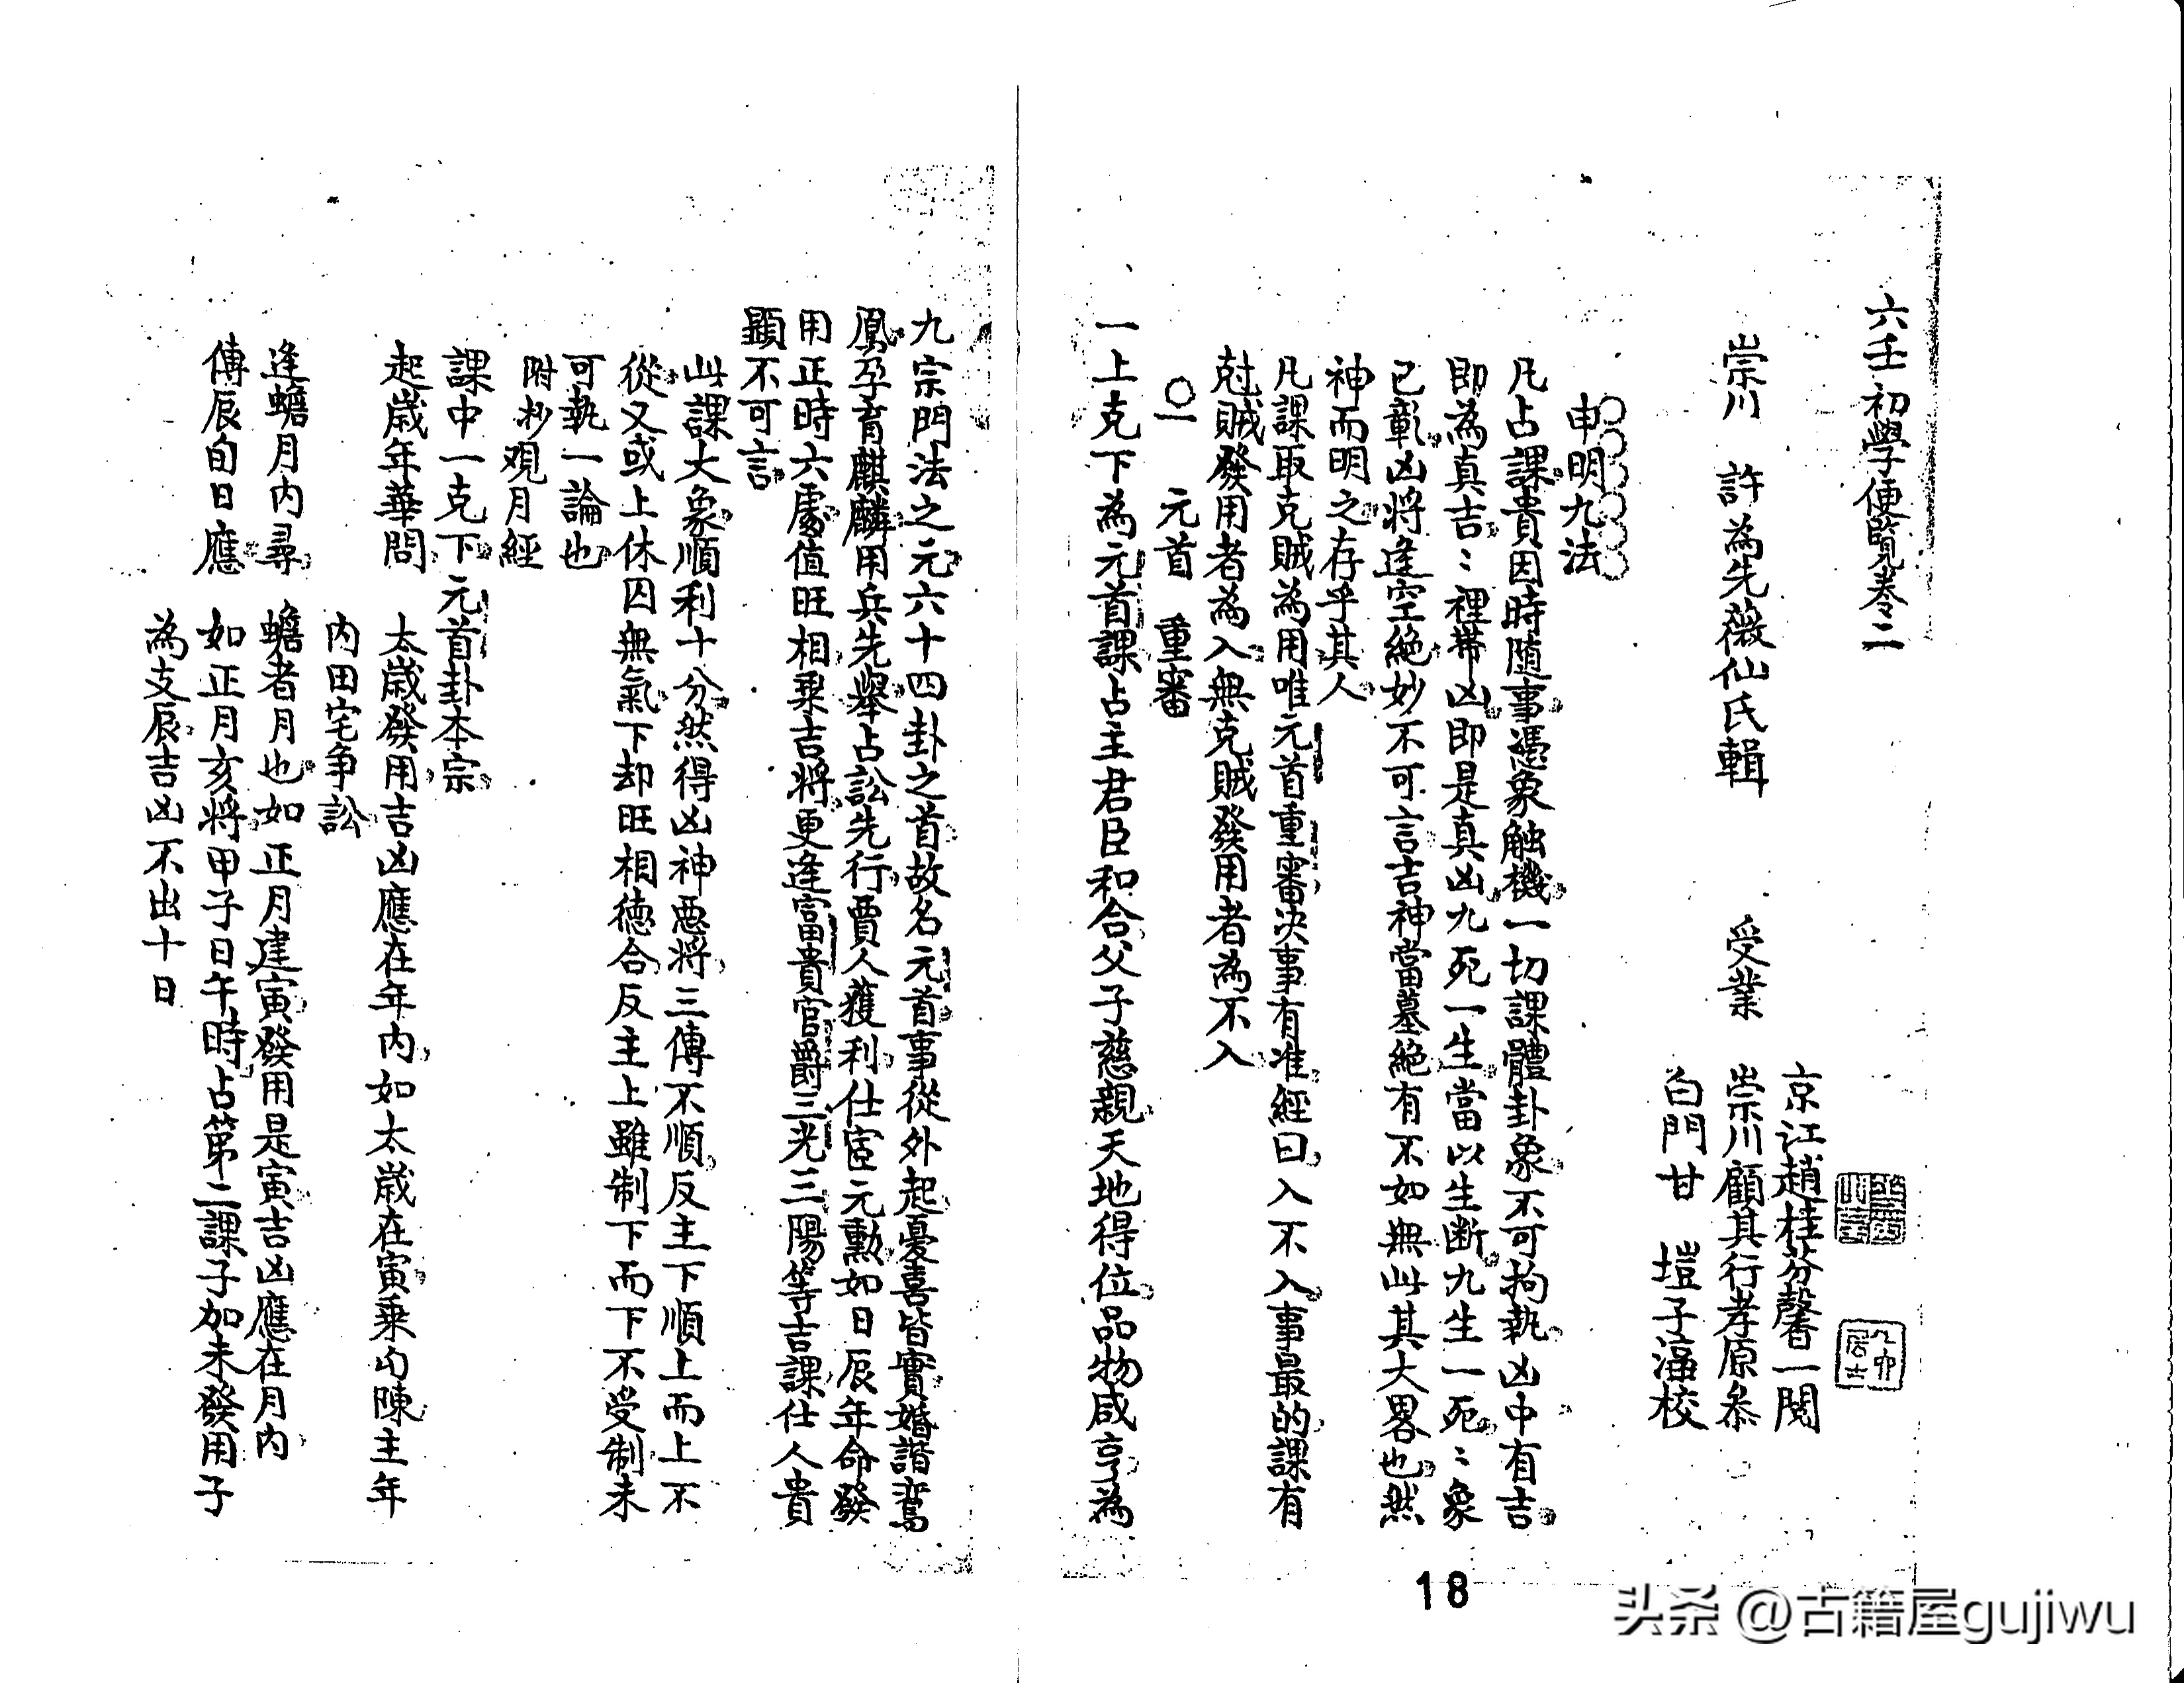 六壬初學便覽卷二
崇川 許為先薇仙氏輯 受業
京江趙桂芬馨一閱
崇川顧其行孝原叅
白門甘 塏子滀校
申明九法
凡占課貴因時随事憑象触機一切課體卦象不可拘執凶中有吉
即為真吉〻裡帶凶即是真凶九死一生當以生断九生一死〻象
已彰凶将逢空絶妙不可言吉神當墓絶有不如無此其大畧也然
神而明之存乎其人
凡課取克賊為用唯元首重審决事有准經曰入不入事最的課有
尅賊發用者為入無克賊發用者為不入
元首 重審
一上克下為元首課占主君臣和合父子慈親天地得位品物咸亨為
九宗門法之元六十四卦之首故名元首事從外起憂喜皆實婚諧鸞
鳳孕育麒麟用兵先舉占訟先行賈人獲利仕宦元勳如日辰年命發
用正時六處值旺相乘吉将更逢富貴官爵三光三陽等吉課仕人貴
顯不可言
此課大象順利十分然得凶神惡将三傳不順反主下順上而上不
從又或上休囚無氣下却旺相德合反主上雖制下而下不受制未
可執一論也
附抄观月經
課中一克下元首卦本宗
起歲年華問 太歲發用吉凶應在年內如太歲在寅乘勾陳主年
內田宅争訟
逢蟾月内尋 蟾者月也如正月建寅發用是寅吉凶應在月内
傳辰旬日應 如正月亥将甲子日午時占第二課子加未發用子
為支辰吉凶不出十日
18
头条 @古籍屋gujiwu